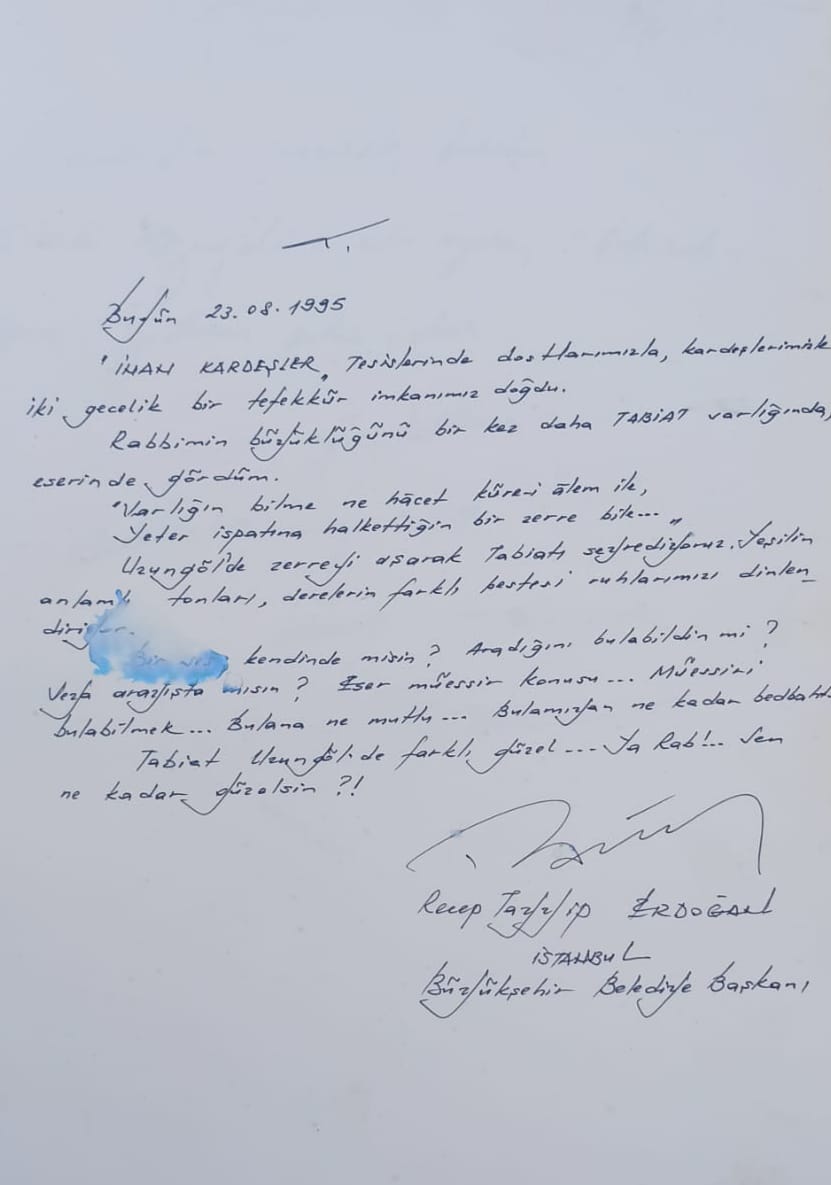 Bugün 23.08.1995
"İNAN KARDEŞLER" Tesislerinde dostlarımızla, kardeşlerimizle
iki gecelik bir tefekkür imkanımız doğdu.
Rabbimin büyüklüğünü bir kez daha TABİAT varlığında,
eserinde gördüm.
"Varlığın bilme ne hâcet küre-i âlem ile,
Yeter ispatına halkettiğin bir zerre bile..."
Uzungöl'de zerreyi aşarak Tabiatı seyrediyoruz. Yeşilin
anlamlı tonları, derelerin farklı bestesi ruhlarımızı dinlen_
diriyor.
Bir ses, kendinde misin? Aradığını bulabildin mi?
Veya arayışta mısın? Eser müessir konusu... Müessiri
bulabilmek... Bulana ne mutlu... Bulamıyan ne kadar bedbaht
Tabiat Uzungöl'de farklı, güzel... Ya Rab!.. Sen
ne kadar güzelsin?!
Recep Tayyip ERDOĞAN
İSTANBUL
Büyükşehir Belediye Başkanı